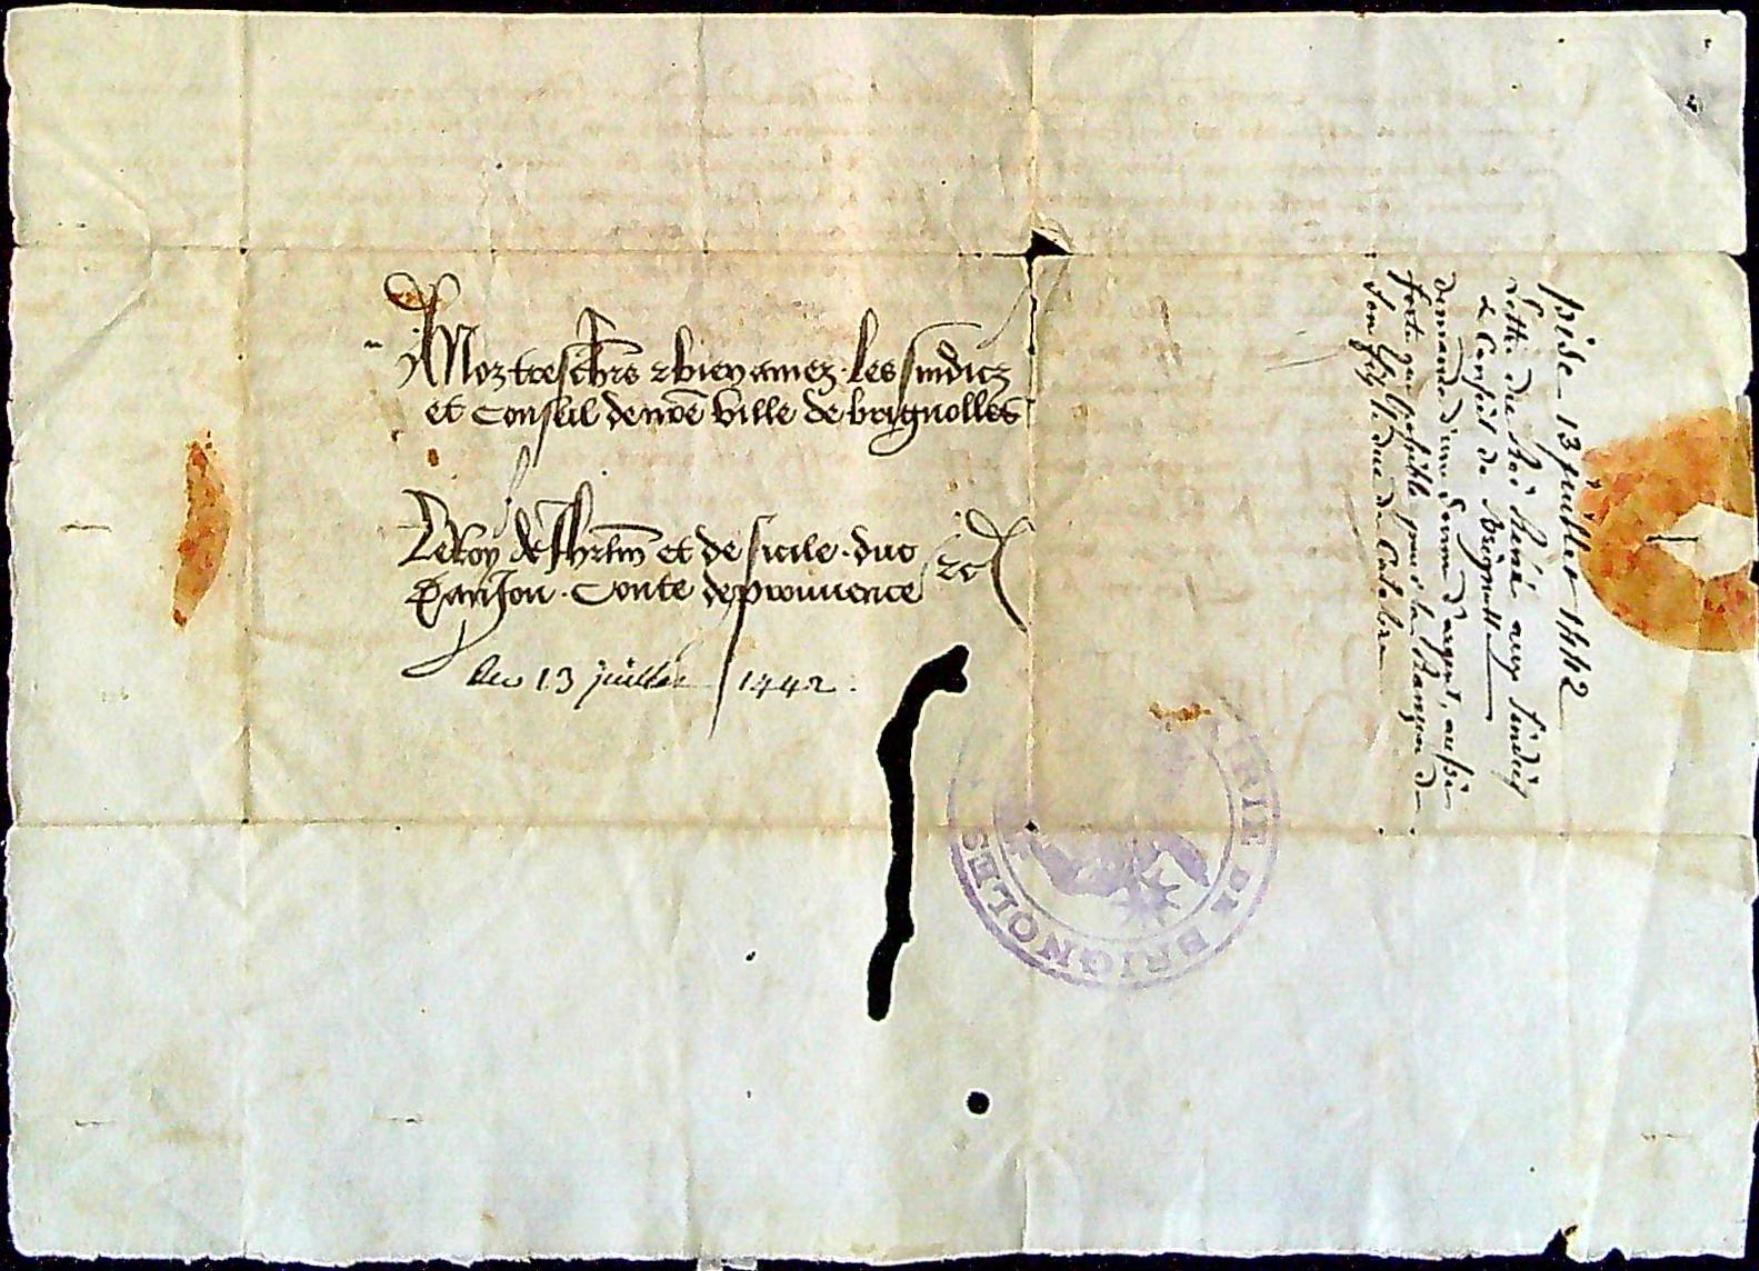 A Noz treschers et bien amez les sindicz
et Conseil de nrē ville de brignolles
Le Roy de Jhrlm et de sicile duc
Danjou Conte de prouuence &c
du 13 juillet 1442.
pise 13 juillet 1442
Lettre du Roi René aux sindics
& Conseil de Brignolle
demande d'une somme d'argent, aussi
forte que possible pour la Rançon de
son fils le duc de Calabre
MAIRIE DE BRIGNOLES